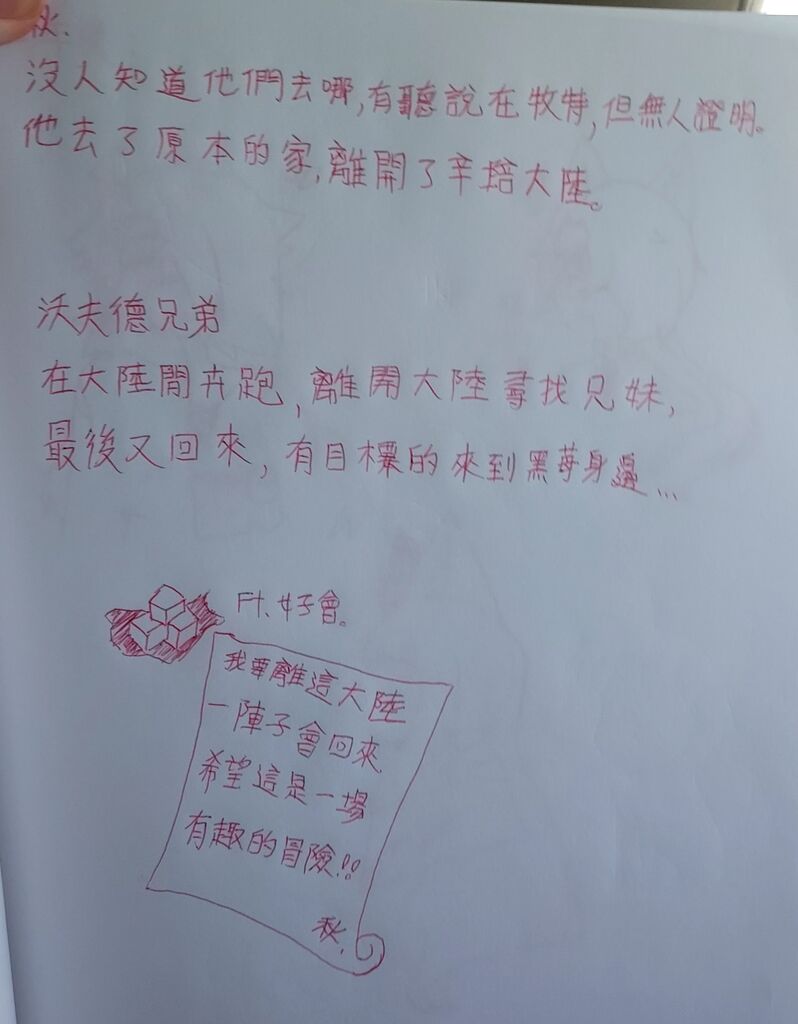 秋.
沒人知道他們去哪,有聽說在牧特,但無人證明。
他去了原本的家,離開了辛培大陸。
沃夫德兄弟
在大陸間卉跑,離開大陸尋找兄妹,
最後又回來,有目標的來到黑莓身邊...
Ft. 好會。
我要離這大陸
一陣子會回來
希望這是一場
有趣的冒險!!
秋.